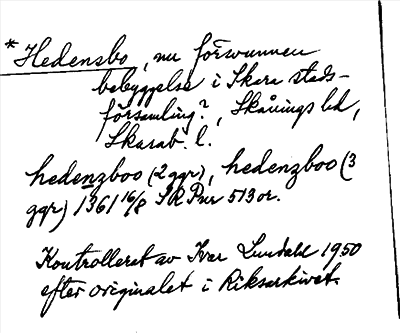 *Hedensbo, nu försvunnen
bebyggelse i Skara stads-
församling?, Skånings hd,
Skarab. l.
hedenzboo (2 ggr), hedenzboo (3
ggr) 1361 16/8 SRPnr 513 or.
Kontrollerat av Ivar Lundahl 1950
efter originalet i Riksarkivet.